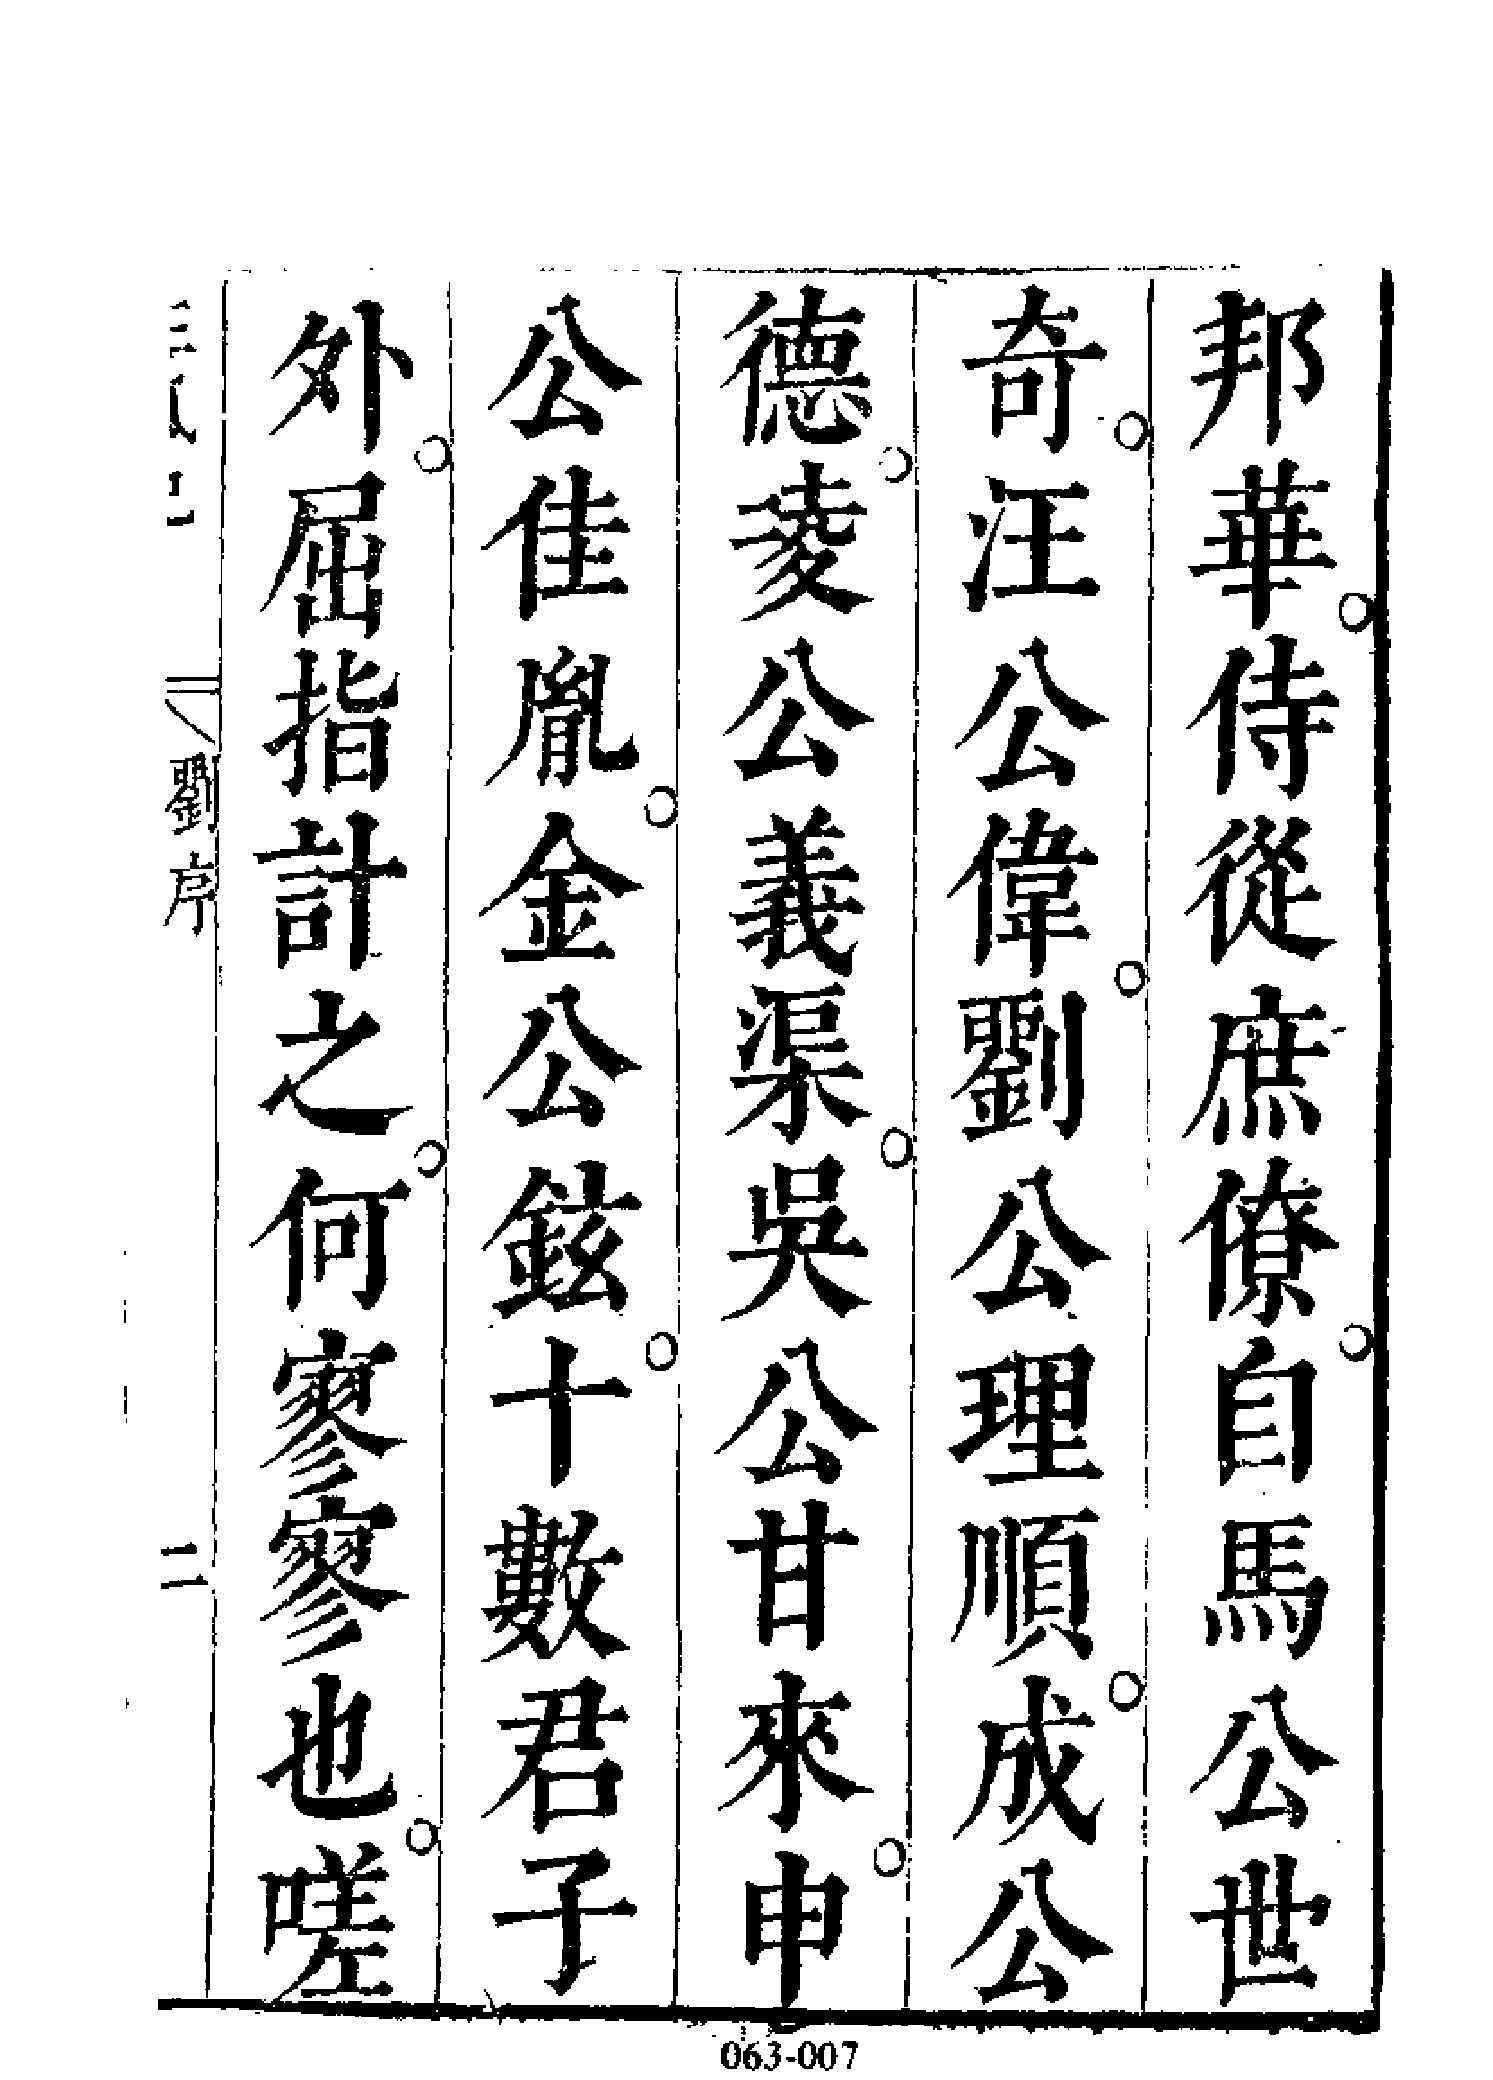 邦華侍從庶僚自馬公世
奇汪公偉劉公理順成公
德夌公義渠吳公甘來申
公佳胤金公鉉十數君子
外屈指計之何寥寥也嗟
劉序
二
063-007